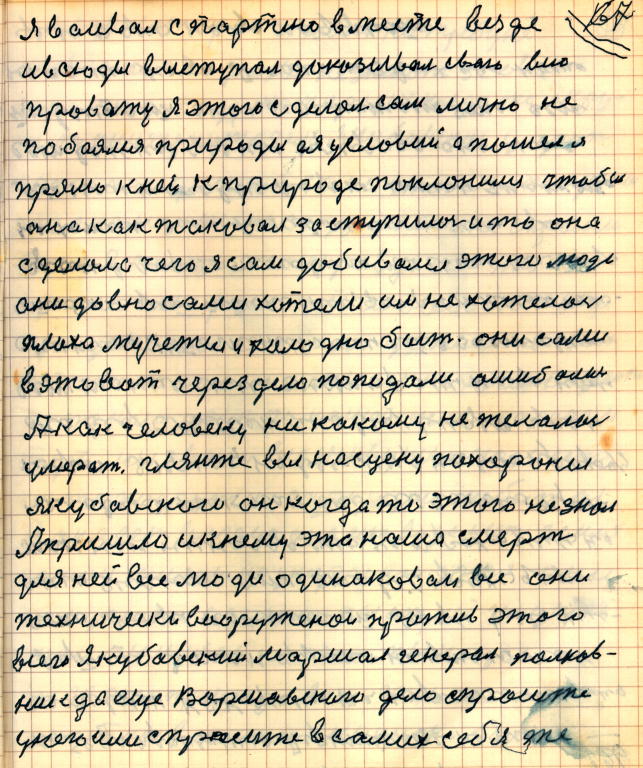 67
я воивал спартию вместе везде
ивсюды выступал доказывал свою
провату я этого сделол сам лично не
побаялся природы ея условий а пошел я
прямо кней к природе поклонился чтобы
она как таковая заступилась ито она
сделола чего ясам добивался этого люди
они довно сами хотели им не хотелось
плоха мучется и холодно болт. они сами
вэто вот через дело поподали ошибалис
Акак человеку никакому не желалось
умерат. глянте вы насцену похороны
якубавского он когдато этого незнал
Апришло и кнему эта наша смерт
для ней все люди одинаковаи все они
технически вооруженои против этого
всего Якубавский маршал генерал полков-
ник да еще Варшавского дело спросите
унего или спросите в самих себя